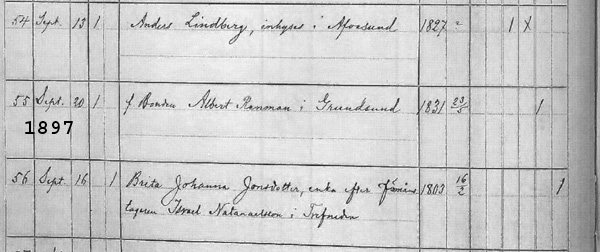 54 Sept. 13 1 Anders Lindberg, inhyses i Afvasund 1827 1 X
55 Sept. 20 1 f Bonden Albert Ranman i Grundsund 1831 23/5 1
1897
56 Sept. 16 1 Brita Johanna Jonsdotter, enka efter 1803 16/2 1
tagaren Israel Natanaelsson i